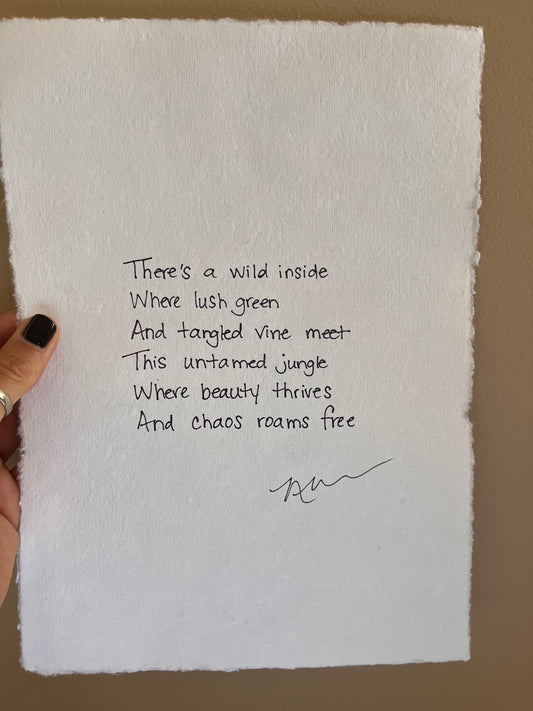 There's a wild inside
Where lush green
And tangled vine meet
This untamed jungle
Where beauty thrives
And chaos roams free